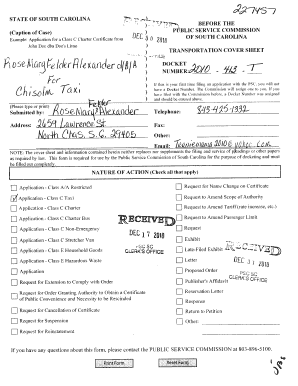 227457
STATE OF SOUTH CAROLINA
(Caption of Case)
Example: Application for a Class C Charter Certificate from
John Doe dba Doe's Limo
RoseMary Felder Alexander d/b/a
For
Chisolm Taxi
RECEIVED
DEC 30 2010
BEFORE THE
PUBLIC SERVICE COMMISSION
OF SOUTH CAROLINA
TRANSPORTATION COVER SHEET
DOCKET
NUMBER: 2010 - 413 - T
If this is your first time filing an application with the PSC, you will not
have a Docket Number. The Commission will assign one to you. If you
have filed with the Commission before, a Docket Number was assigned
and should be entered above.
(Please type or print)
Submitted by: RoseMary Felder Alexander
Address: 2659 Lawrence St
North Chas, S.C. 29405
Telephone: 843-425-1332
Fax:
Other:
Email:
NOTE: The cover sheet and information contained herein neither replaces nor supplements the filing and service of pleadings or other papers
as required by law. This form is required for use by the Public Service Commission of South Carolina for the purpose of docketing and must
be filled out completely.
NATURE OF ACTION (Check all that apply)
Application - Class A/A Restricted
Application - Class C Taxi
Application - Class C Charter
Application - Class C Charter Bus
Application - Class C Non-Emergency
Application - Class C Stretcher Van
Application - Class E Household Goods
Application - Class E Hazardous Waste
Application
Request for Extension to Comply with Order
Request for Order Granting Authority to Obtain a Certificate
of Public Convenience and Necessity to be Rescinded
Request for Cancellation of Certificate
Request for Suspension
Request for Reinstatement
RECEIVED
DEC 17 2010
PSC SC
CLERK'S OFFICE
Request for Name Change on Certificate
Request to Amend Scope of Authority
Request to Amend Tariff (rate increase, etc.)
Request to Amend Passenger Limit
Request
Exhibit
Late-Filed Exhibit
Letter
Proposed Order
Publisher's Affidavit
Reservation Letter
Response
Return to Petition
Other:
RECEIVED
DEC 31 2010
PSC SC
CLERK'S OFFICE
If you have any questions about this form, please contact the PUBLIC SERVICE COMMISSION at 803-896-5100.
Print Form
Reset Form